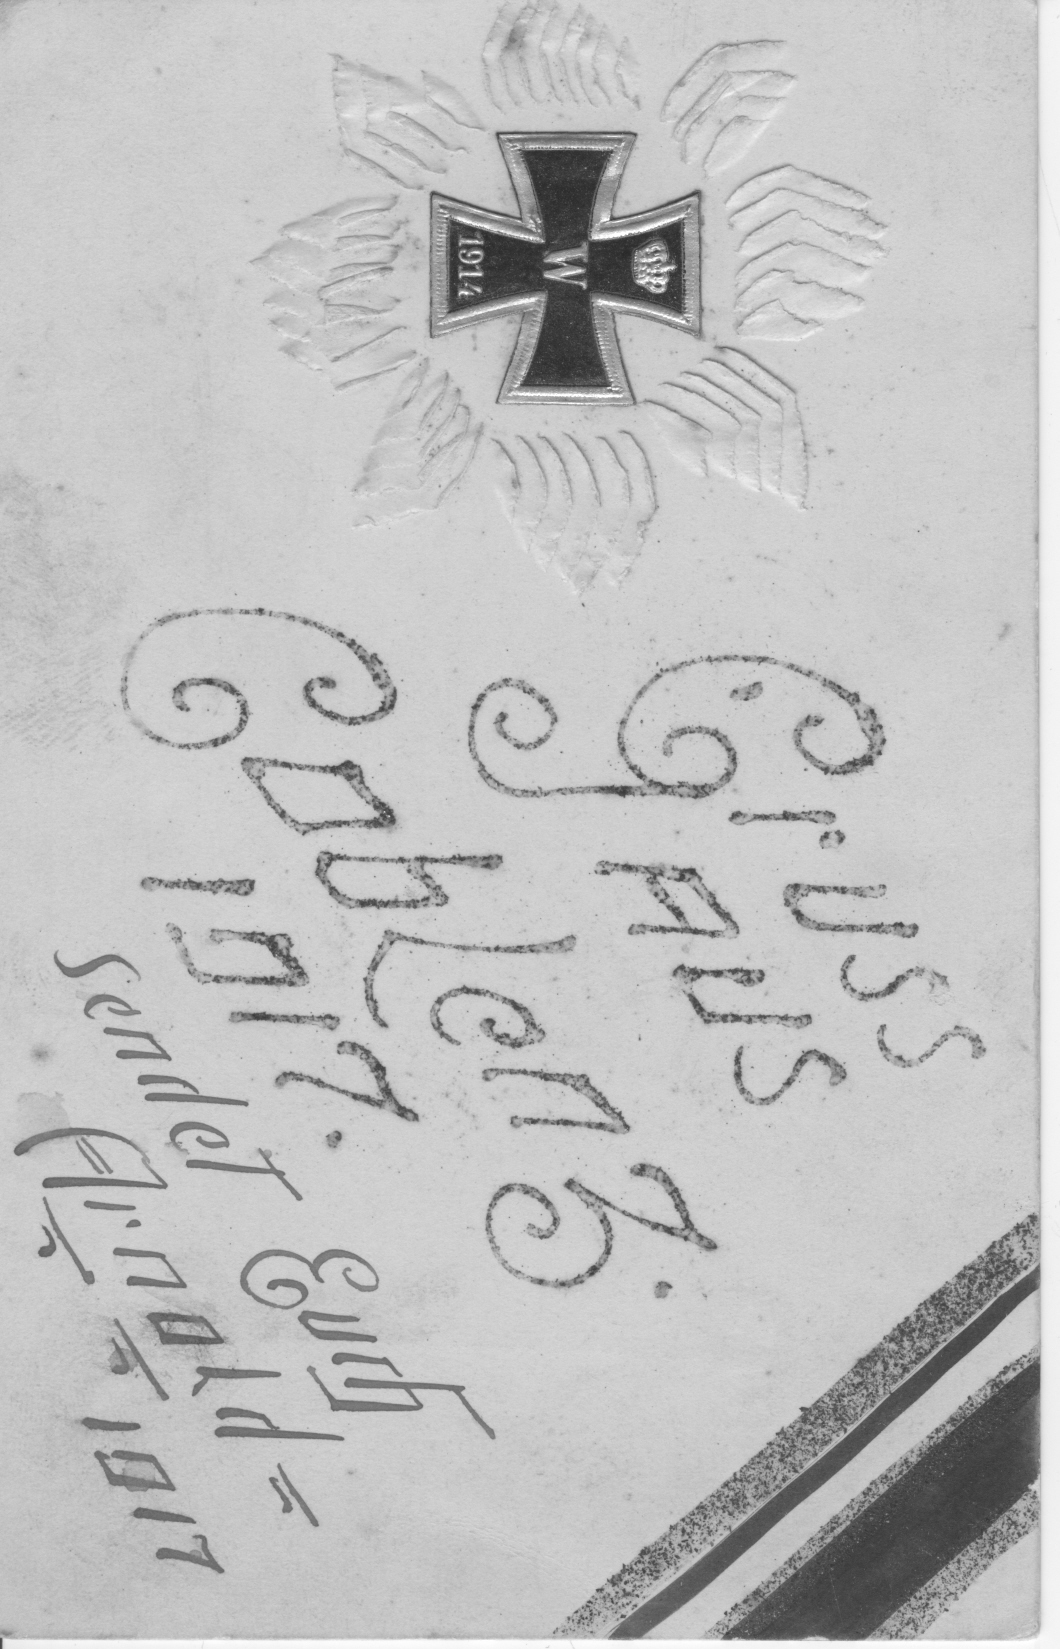 W
1914
Gruss
Aus
Coblenz.
1917.
sendet Euch
Arnold
1917